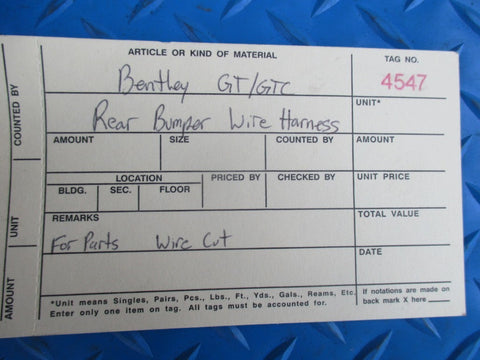 ARTICLE OR KIND OF MATERIAL
TAG NO.
Bentley GT/GTC
4547
UNIT*
Rear Bumper Wire Harness
AMOUNT SIZE COUNTED BY AMOUNT
LOCATION PRICED BY CHECKED BY UNIT PRICE
BLDG. SEC. FLOOR
REMARKS
TOTAL VALUE
For Parts Wire Cut
DATE
*Unit means Singles, Pairs, Pcs., Lbs., Ft., Yds., Gals., Reams, Etc.
Enter only one item on tag. All tags must be accounted for.
If notations are made on
back mark X here
COUNTED BY
UNIT
AMOUNT